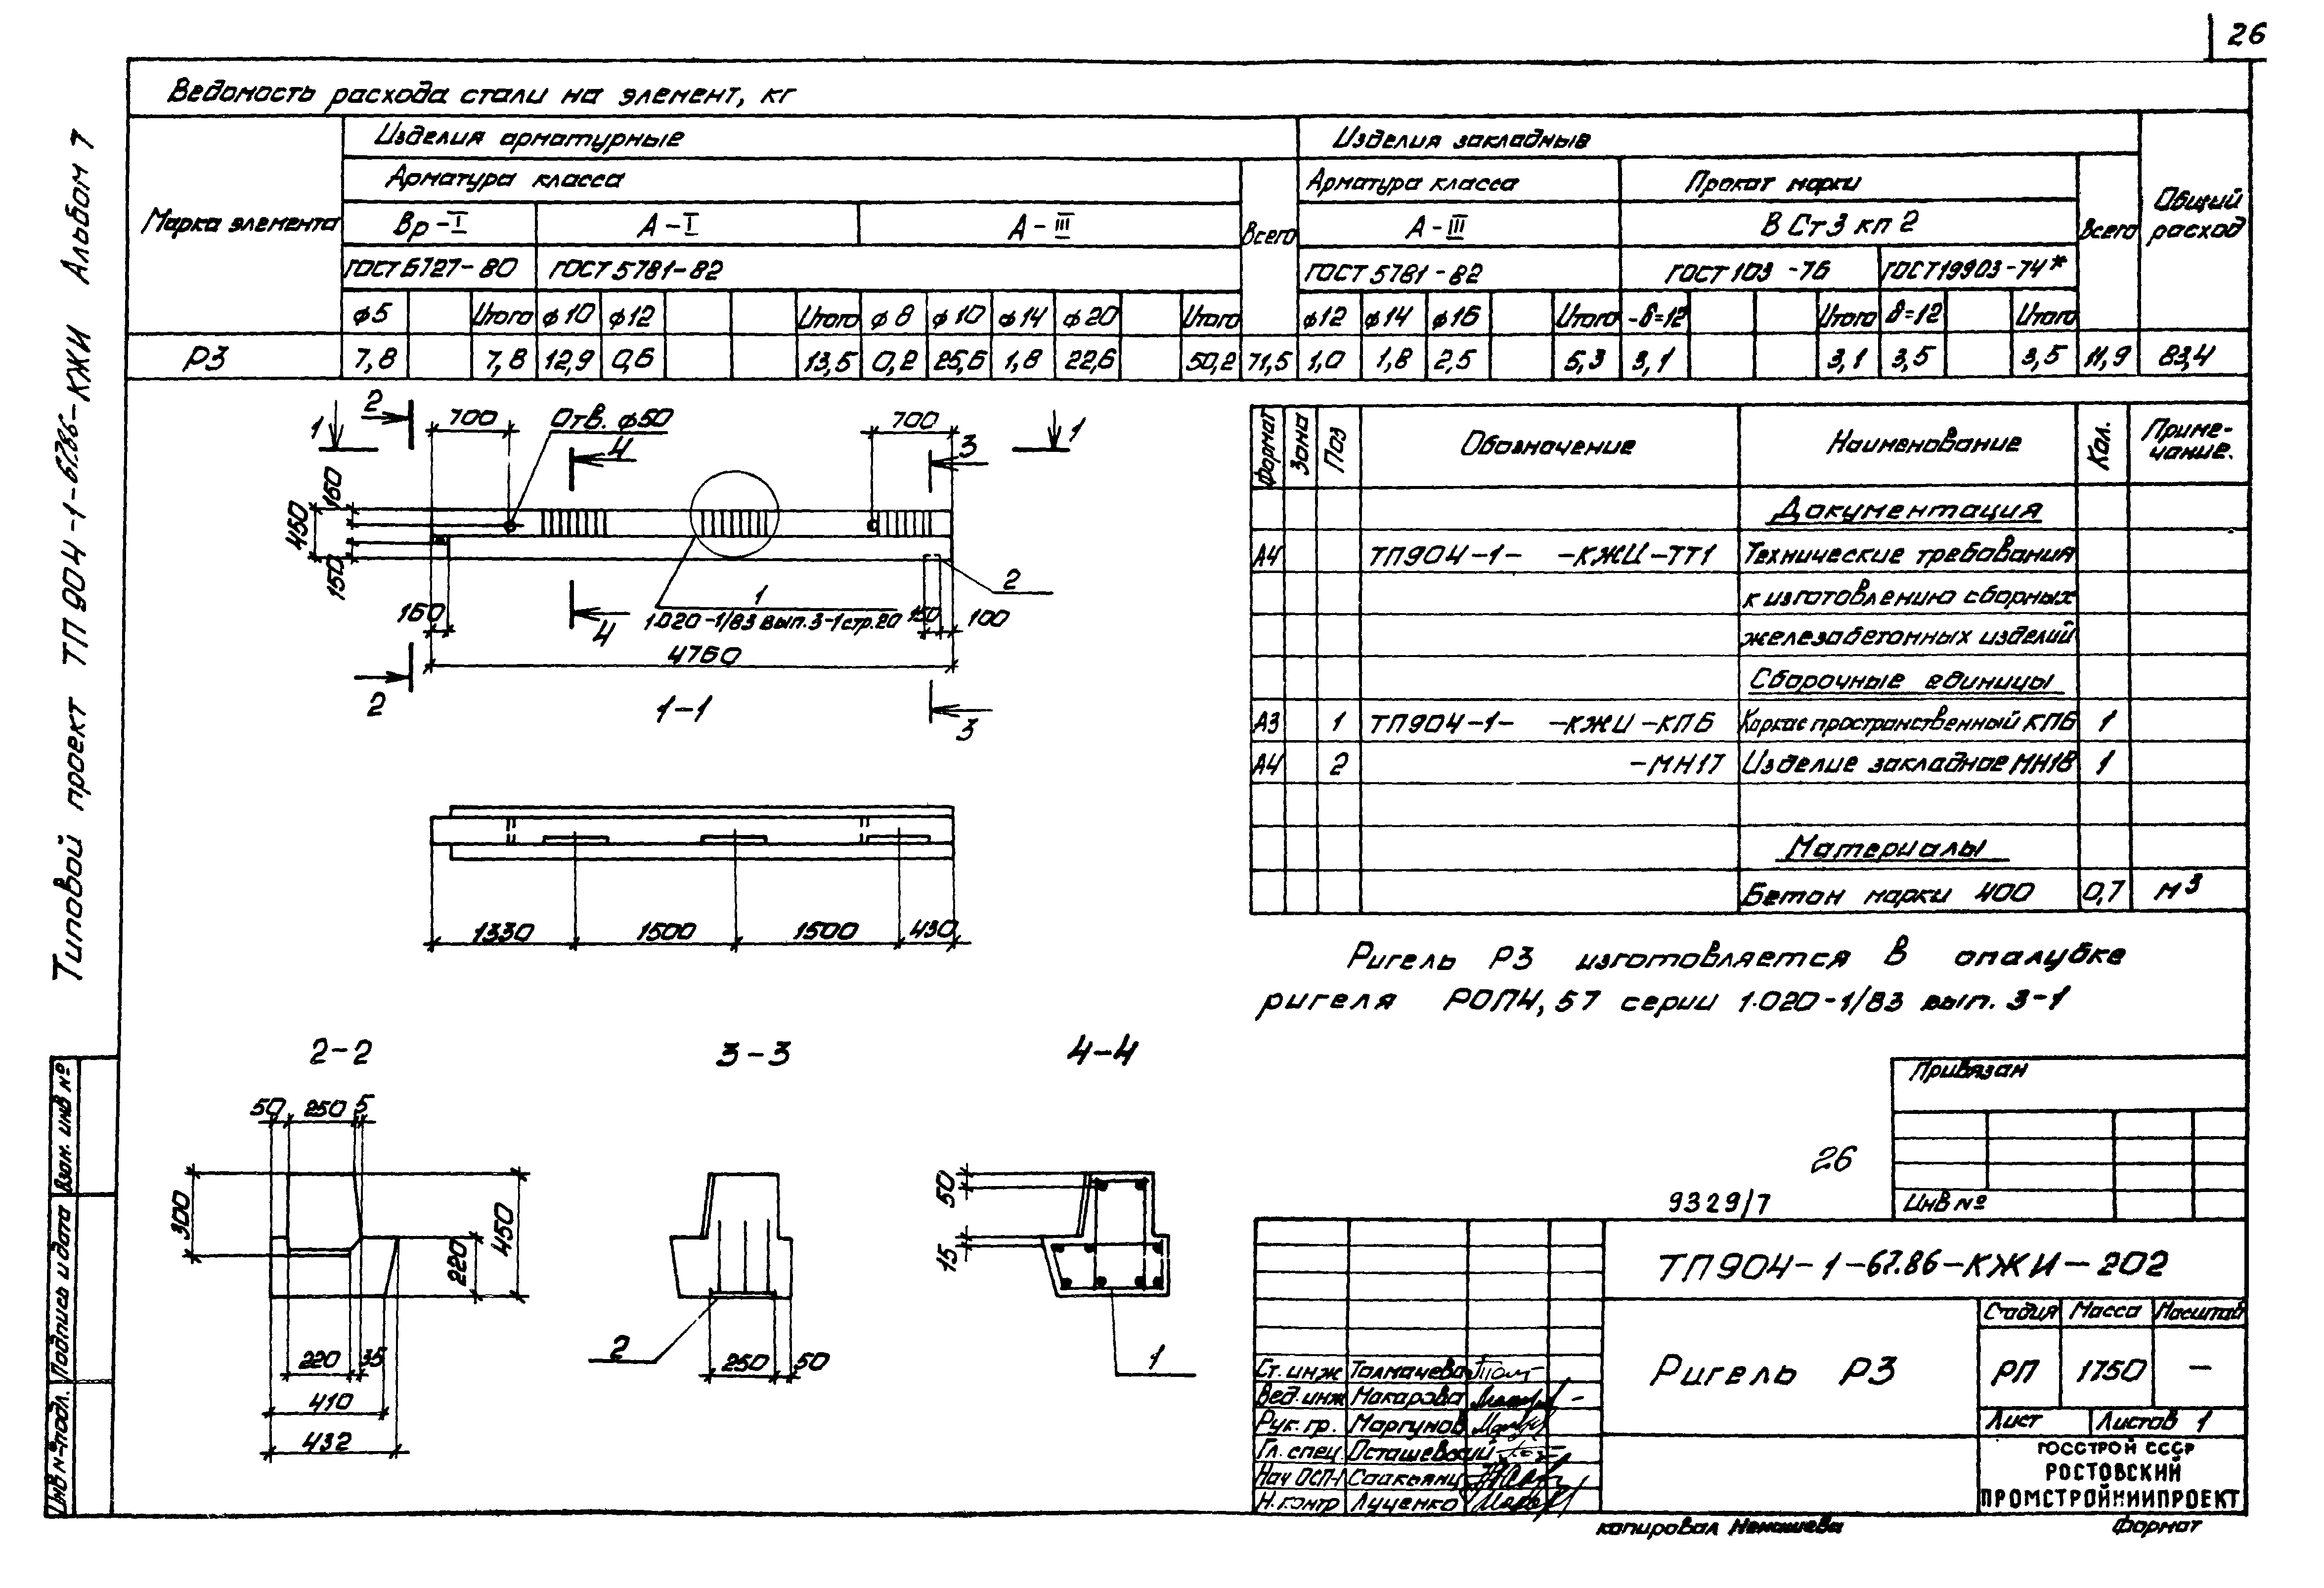 26
Типовой проект ТП 904-1-67.86-КЖИ Альбом 7
Ведомость расхода стали на элемент, кг
Марка элемента
Изделия арматурные
Изделия закладные
Общий расход
Арматура класса
Всего
Арматура класса
Прокат марки
Всего
Вр-I
А-I
А-III
А-III
В Ст3 кп 2
ГОСТ 6727-80
ГОСТ 5781-82
ГОСТ 5781-82
ГОСТ 103-76
ГОСТ 19903-74*
ф5 Итого ф10 ф12 Итого ф8 ф10 ф14 ф20 Итого ф12 ф14 ф16 Итого -δ=12 Итого δ=12 Итого
Р3 7,8 7,8 12,9 0,6 13,5 0,2 25,6 1,8 22,6 50,2 71,5 1,0 1,8 2,5 5,3 3,1 3,1 3,5 3,5 11,9 83,4
1 2 700 Отв. ф50 4 700 3 1
160
450
150
160
1
1.020-1/83 вып.3-1 стр.20
2
150 100
4
4760
2
1-1
3
1330 1500 1500 430
2-2
50 250 5
300
450
220
220 35
410
432
3-3
2
250 50
4-4
50
15
1
Формат Зона Поз Обозначение Наименование Кол. Приме-
чание.
Документация
А4 ТП904-1- -КЖИ-ТТ1 Технические требования
к изготовлению сборных
железобетонных изделий
Сборочные единицы
А3 1 ТП904-1- -КЖИ-КП6 Каркас пространственный КП6 1
А4 2 -МН17 Изделие закладное МН18 1
Материалы
Бетон марки 400 0,7 м3
Ригель Р3 изготовляется в опалубке
ригеля РОП4,57 серии 1.020-1/83 вып. 3-1
Привязан
26
9329/7
Инв №
ТП904-1-67.86-КЖИ-202
Ригель Р3
Стадия Масса Масштаб
РП 1750 —
Лист Листов 1
ГОССТРОЙ СССР
РОСТОВСКИЙ
ПРОМСТРОЙНИИПРОЕКТ
Ст. инж Толмачева
Вед. инж Макарова
Рук. гр. Моргунов
Гл. спец. Осташевский
Нач ОСП-1 Саакьянц
Н. контр Луценко
Взам. инв №
Подпись и дата
Инв № подл.
копировал
Формат